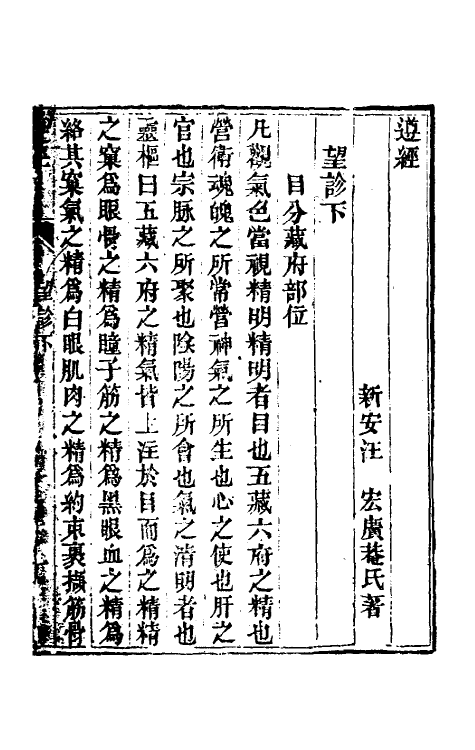 遵經
新安汪　宏廣菴氏著
望診下
目分藏府部位
凡觀氣色當視精明精明者目也五藏六府之精也
營衛魂魄之所常營神氣之所生也心之使也肝之
官也宗脉之所聚也陰陽之所會也氣之清明者也
靈樞曰五藏六府之精氣皆上注於目而爲之精精
之窠爲眼骨之精爲瞳子筋之精爲黑眼血之精爲
絡其窠氣之精爲白眼肌肉之精爲約束裹擷筋骨
望診下